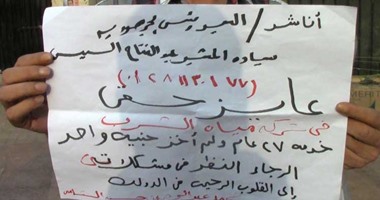 أناشد / السيد رئيس جمهورية
سيادة المشير عبد الفتاح السيسي
عايز حقى
فى شركة مياه الشرب
خدمه ٢٧ عام ولم أخذ جنيه واحد
الرجاء النظر فى مشكلاتى
إلى القلوب الرحيمه فى الدولة